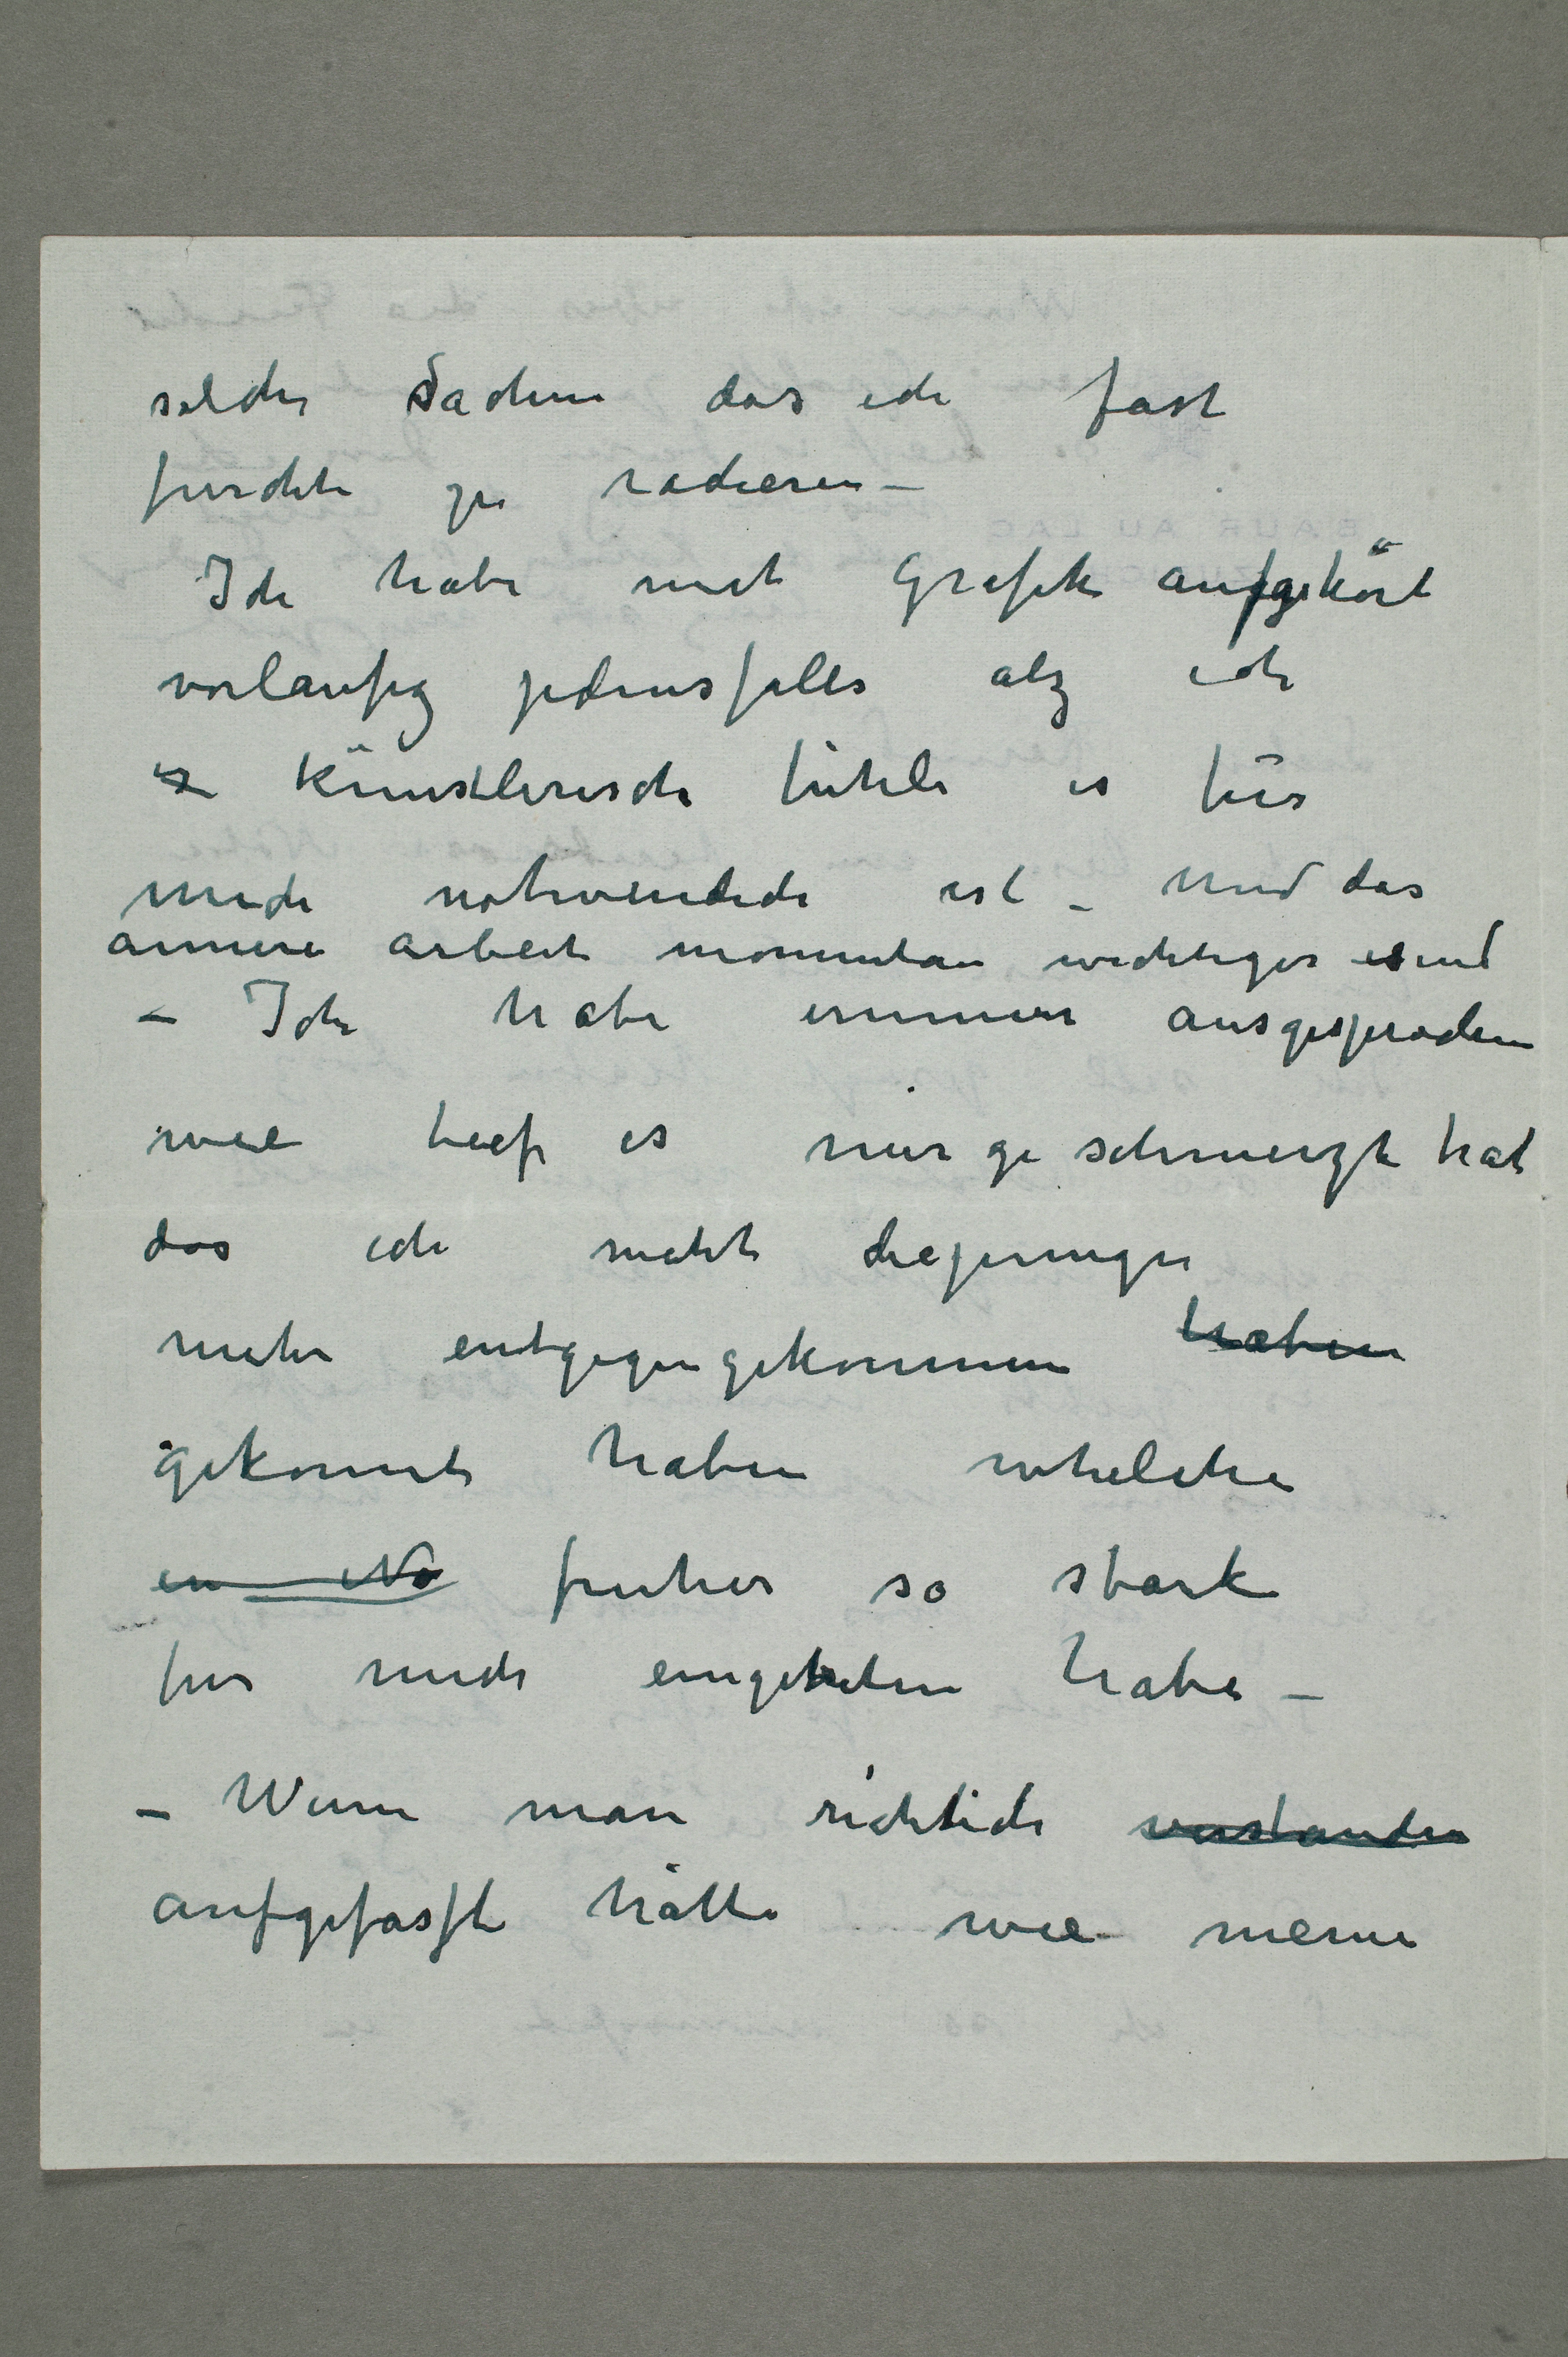 solche Sachen das ich fast
furchte zu radieren –
Ich habe mit Grafik aufgehört
vorlaufig jedensfalls alz ich
künstlerisch fühle es für
mich nothwendich ist – und das
annere arbeit momentan wichtiger sind
– Ich habe immer ausgesprochen
wie tief es mir geschmerzt hat
das ich nicht diejeninge
mehr entgegengekommen haben
gekonnt haben whelche
in No früher so stark
fur mich eingetreten habe –
– Wenn man richtich verstanden
aufgefasst hätte wie meine